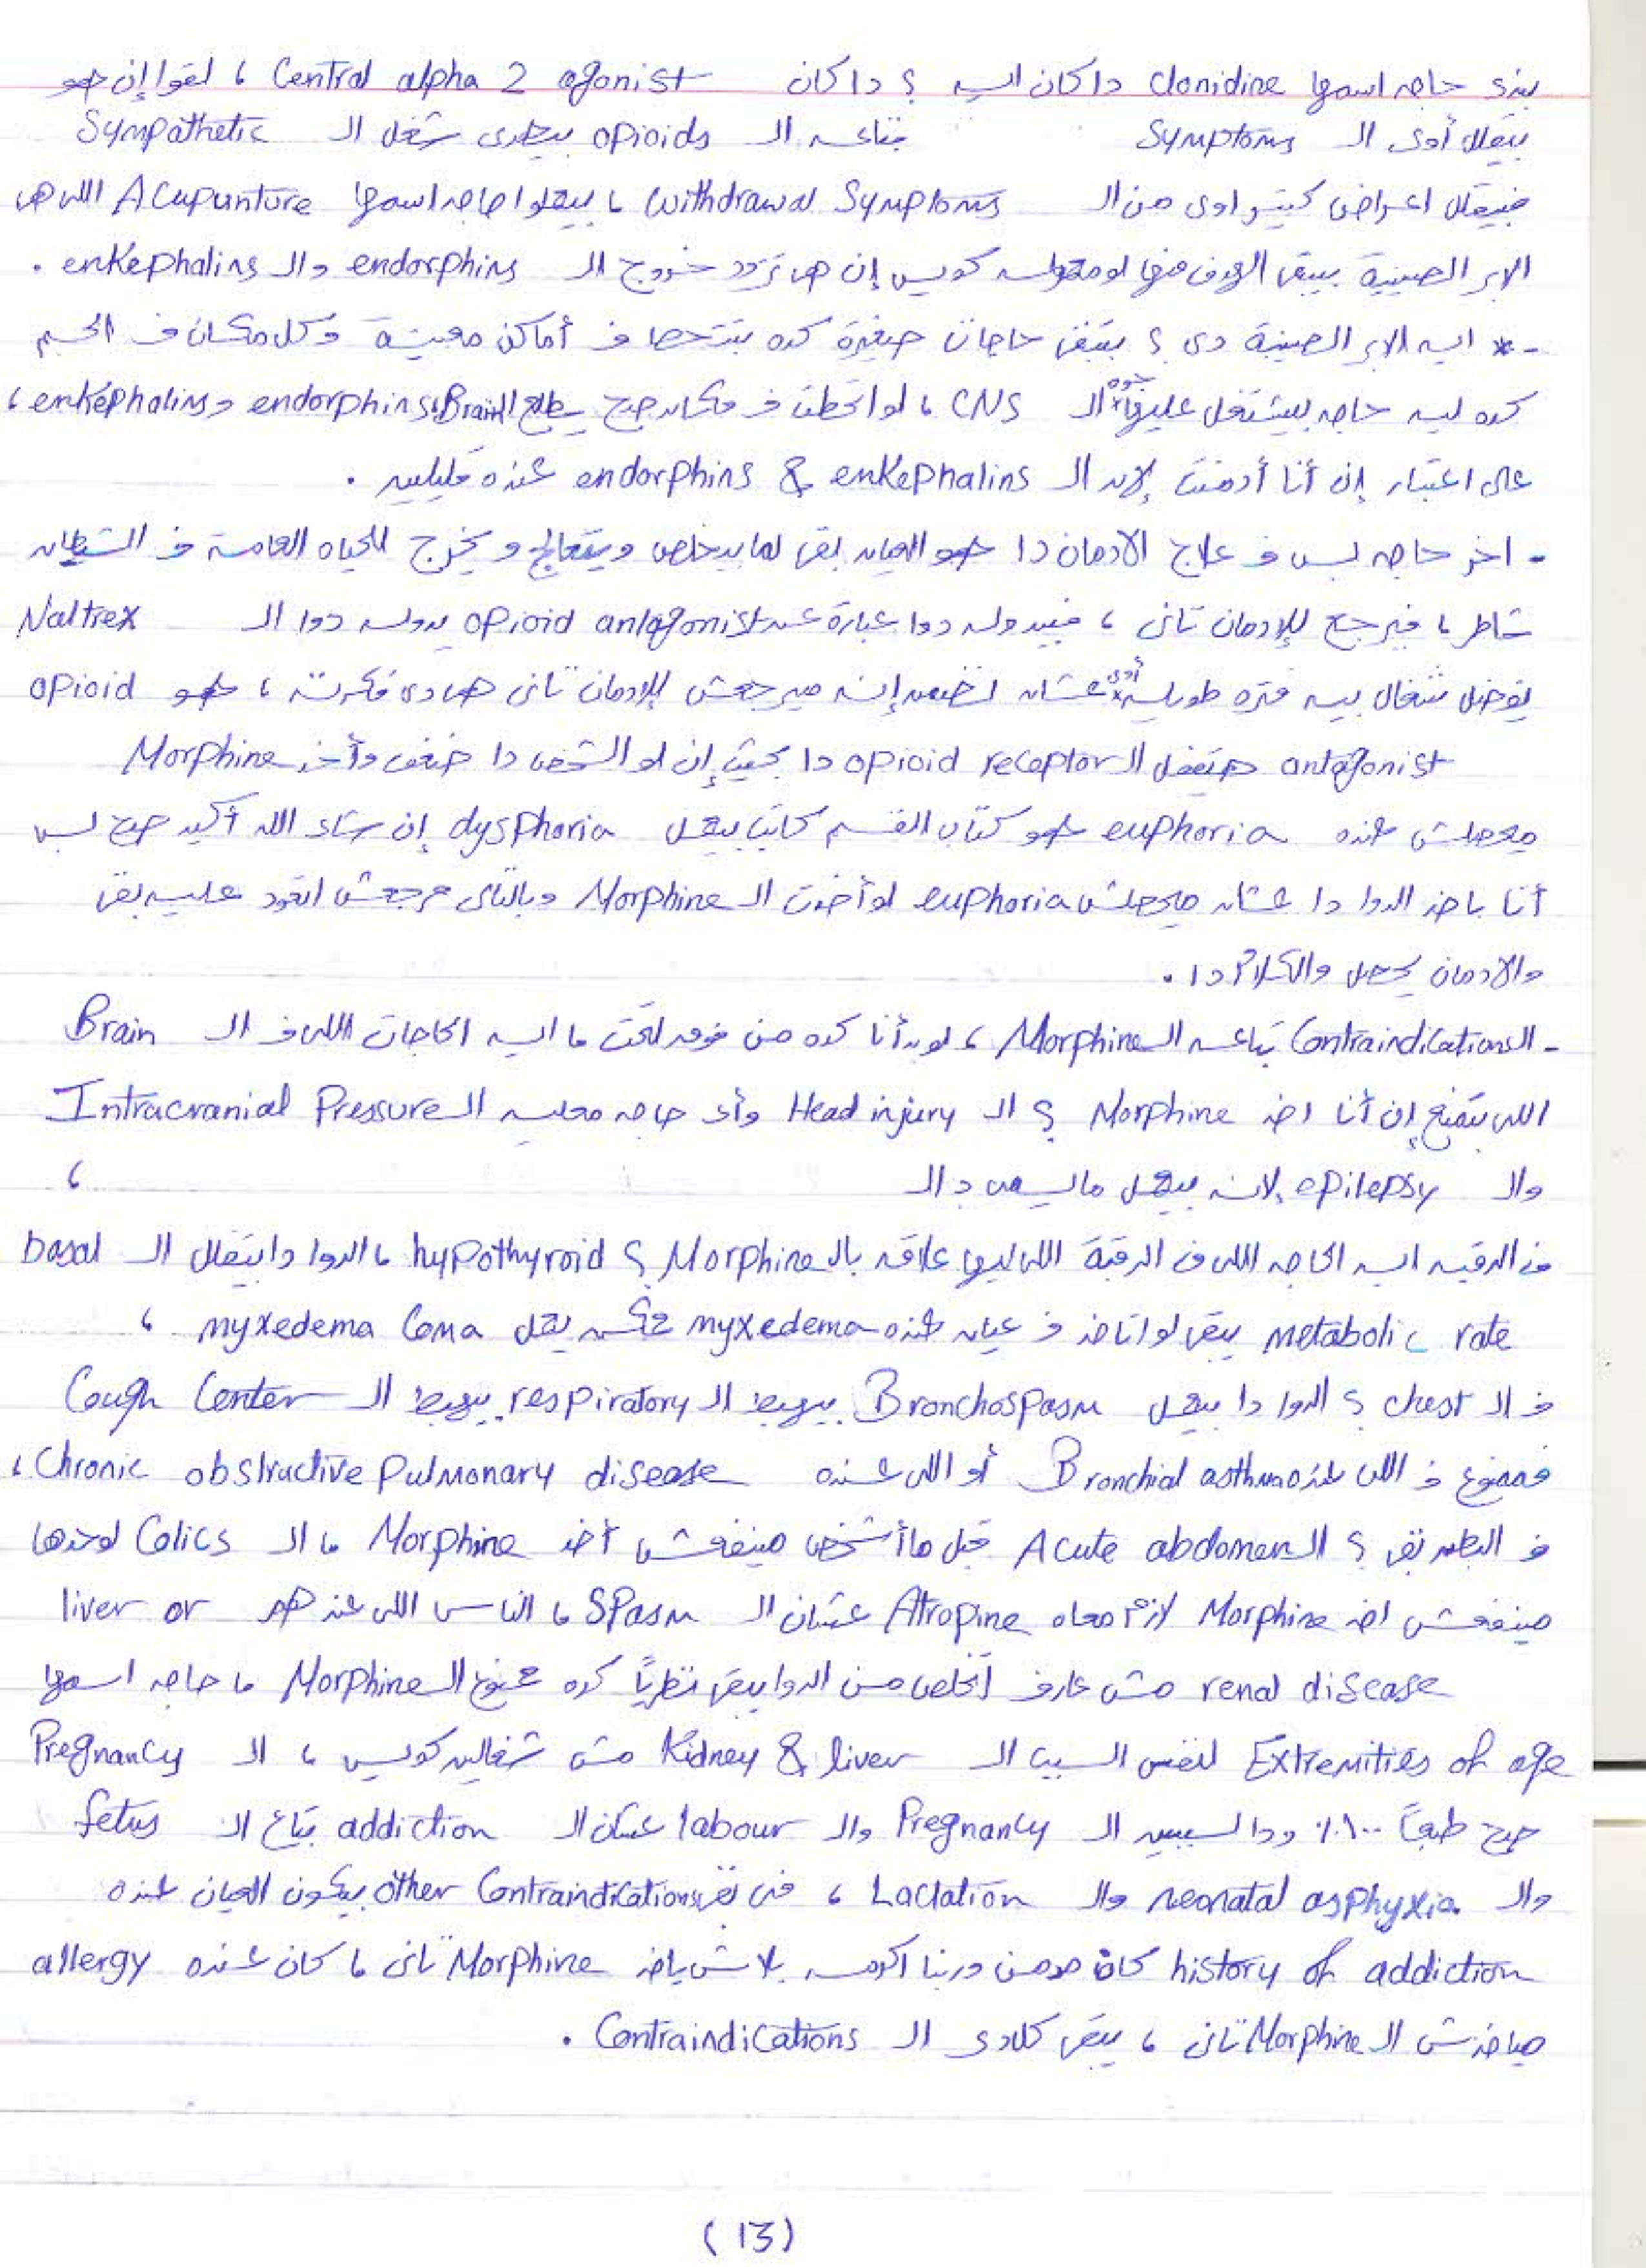 بندى حاجه اسمها clonidine دا كان ايه ؟ دا كان Central alpha 2 agonist ، لقوا إن هو
بيقلل أوى الـ Symptoms بتاعت الـ opioids بيطرى شغل الـ Sympathetic
فبيقلل اعراض كتير اوى من الـ withdrawal Symptoms ، بيعملوا حاجه اسمها Acupunture اللى هى
الابر الصينية بيبقى الهدف منها لو معموله كويس إن هى تزود خروج الـ endorphins والـ enkephalins .
-* ايه الابر الصينية دى ؟ بتبقى حاجات صغيرة كده بتتحط فى أماكن معينة وكل مكان فى الجسم
كده ليه حاجه بيشتغل عليها جوه الـ CNS ، لو اتحطت فى مكان صح يطلع الـBrain endorphins و enkephalins ،
على اعتبار إن أنا أدمنت لإن الـ endorphins & enkephalins عنده قليلين .
- اخر حاجه بس فى علاج الادمان دا هو العيان بقى لما بيخلص ويتعالج ويخرج للحياه العامة فى الشيطان
شاطر ، فيرجع للإدمان تانى ، فبيدوله دوا عبارة عن opioid antagonist يدوله دوا الـ Naltrex
يفضل شغال بيه فتره طويلة أوى عشان نضمن إنه ميرجعش للإدمان تانى هى دى فكرته ، هو opioid
antagonist هيقفل الـ opioid receptor دا بحيث إن لو الشخص دا ضعف وأخد Morphine
ميحصلش عنده euphoria هو كتاب القسم كاتب بيعمل dysphoria إن شاء الله أكيد صح بس
أنا باخد الدوا دا عشان ميحصلش euphoria لو أخدت الـ Morphine وبالتالى مرجعش اتعود عليه بقى
والادمان يحصل والكلام دا .
- الـ Contraindications بتاعت الـ Morphine ، لو بدأنا كده من فوق لتحت ، ايه الحاجات اللى فى الـ Brain
اللى تمنع إن أنا اخد Morphine ؟ الـ Head injury وأى حاجه معليه الـ Intracranial Pressure
والـ epilepsy لانه بيعمل والـ ،
فى الرقبه ايه الحاجه اللى فى الرقبة اللى ليها علاقه بالـ Morphine ؟ hypothyroid ، الدوا دا بيقلل الـ basal
metabolic rate يبقى لو اتاخد فى عيان عنده myxedema ممكن يعمل myxedema Coma ،
فى الـ chest ؟ الدوا دا بيعمل Bronchospasm بيهبط الـ respiratory بيهبط الـ Cough Center
فممنوع فى اللى عنده Bronchial asthma أو اللى عنده Chronic obstructive Pulmonary disease ،
فى البطن بقى ؟ الـ Acute abdomen قبل ما أشخص مينفعش أخد Morphine ، الـ Colics لوحدها
مينفعش اخد Morphine لازم معاه Atropine عشان الـ Spasm ، الناس اللى عندهم liver or
renal disease مش عارف أتخلص من الدوا يبقى نظرياً كده ممنوع الـ Morphine ، حاجه اسمها
Extremities of age لنفس السبب الـ Kidney & liver مش شغالين كويس ، الـ Pregnancy
صح طبعاً ١٠٠٪ ودا لسببين الـ Pregnancy والـ labour عشان الـ addiction بتاع الـ fetus
والـ neonatal asphyxia والـ Lactation ، فى بقى other Contraindications بيكون العيان عنده
history of addiction كان مدمن وربنا اكرمه بلاش ياخد Morphine تانى ، كان عنده allergy
مياخدش الـ Morphine تانى ، يبقى كل دى الـ Contraindications .
(13)